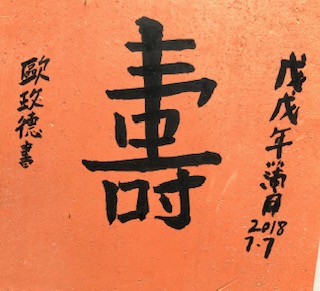 戊戌年蒲月
2018
7.7
壽
歐玫德書